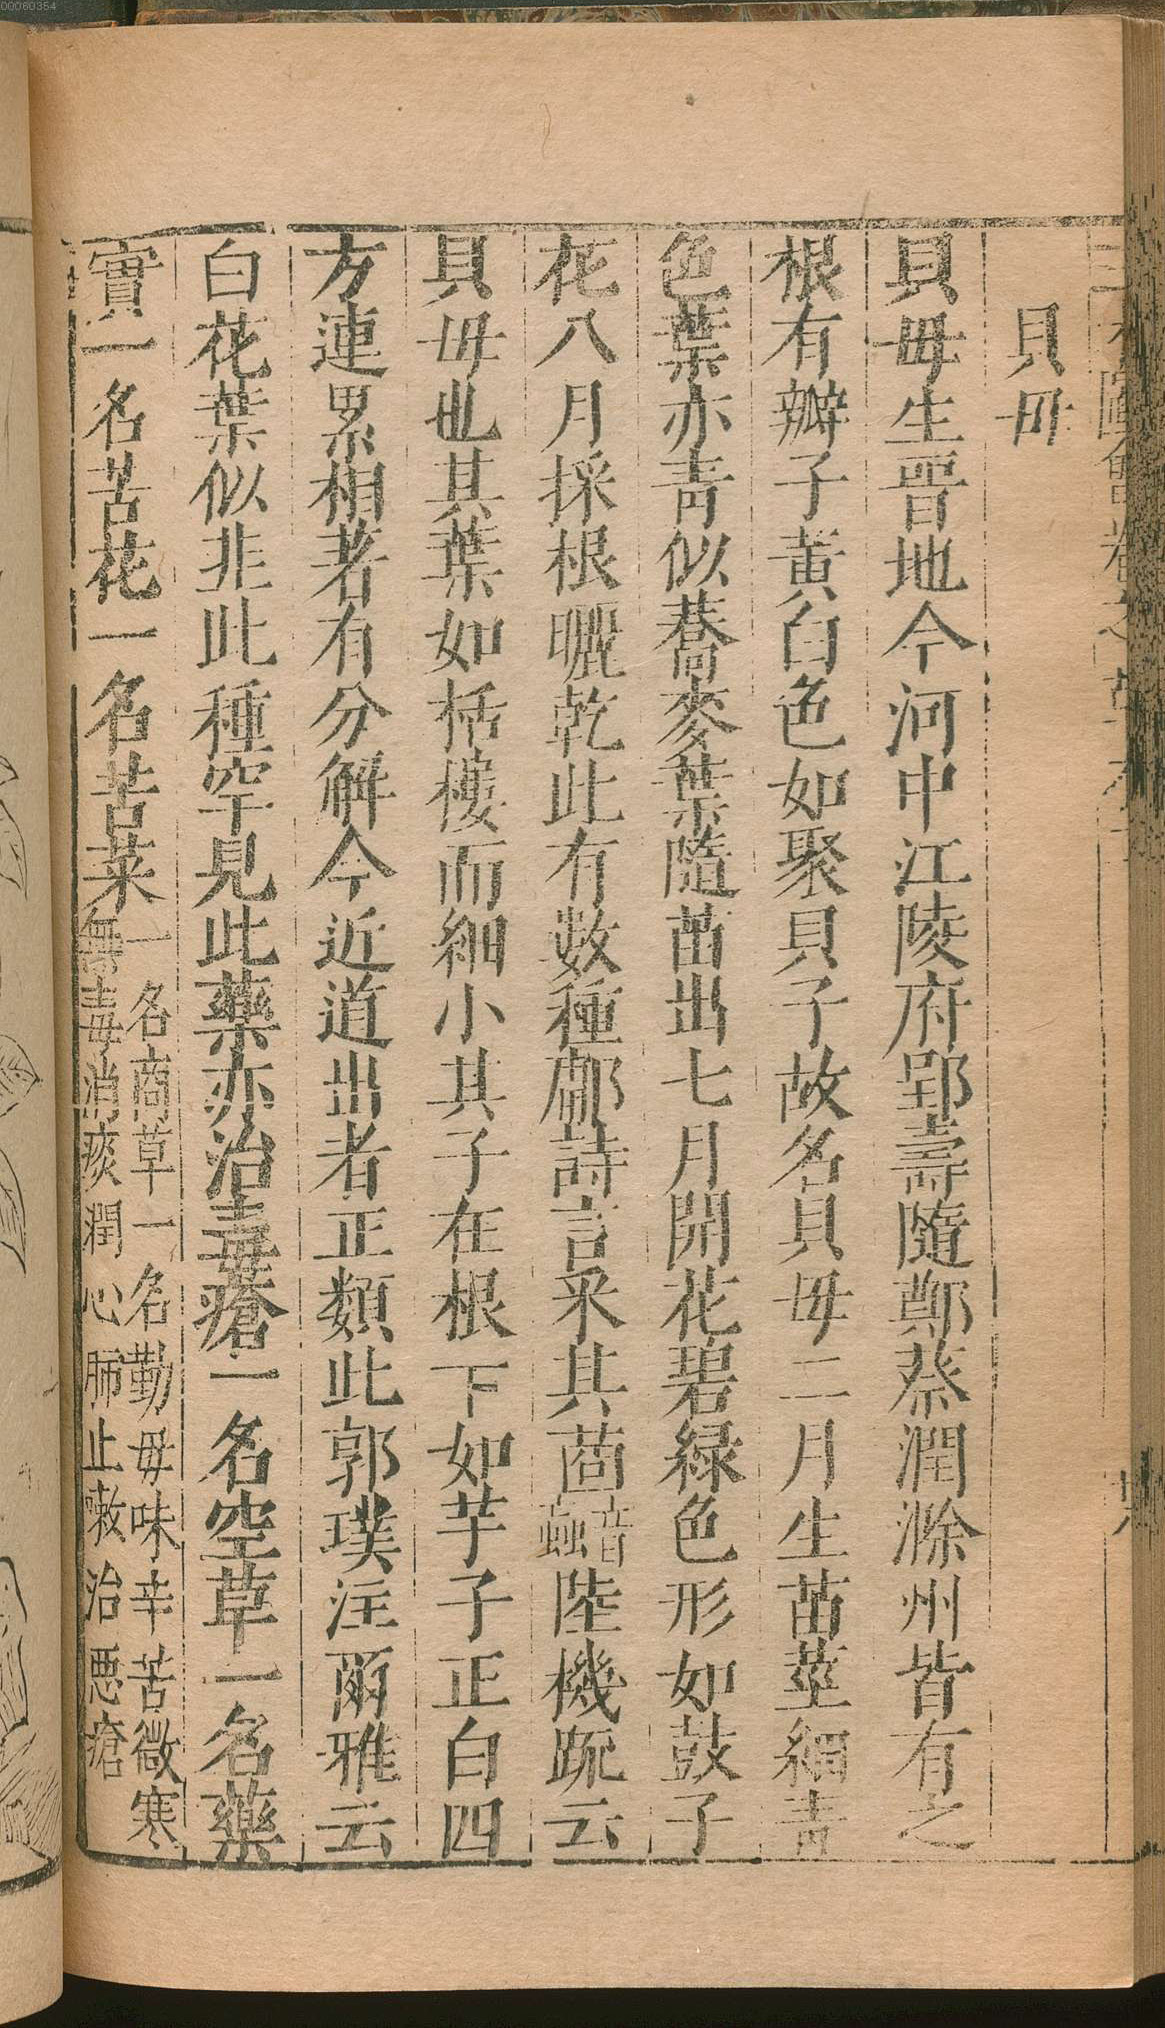 貝母
貝母生晋地今河中江陵府郢壽隨鄭蔡潤滁州皆有之
根有瓣子黃白色如聚貝子故名貝母二月生苗莖細青
色葉亦青似蕎麥葉隨苗出七月開花碧綠色形如鼓子
花八月採根曬乾此有數種鄘詩言采其莔音蝱陸機疏云
貝母也其葉如栝樓而細小其子在根下如芋子正白四
方連累相著有分解今近道出者正類此郭璞注爾雅云
白花葉似韭此種罕見此藥亦治毒瘡一名空草一名藥
實一名苦花一名苦菜一名商草一名勤母味辛苦微寒
無毒消痰潤心肺止嗽治惡瘡
00060354